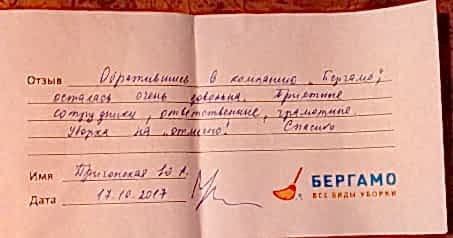 Отзыв Обратившись в компанию "Бергамо",
осталась очень довольна. Приятные
сотрудники, ответственные, грамотные.
Уборка на "отлично"! Спасибо
Имя
Дата 17.10.2017
БЕРГАМО
ВСЕ ВИДЫ УБОРКИ